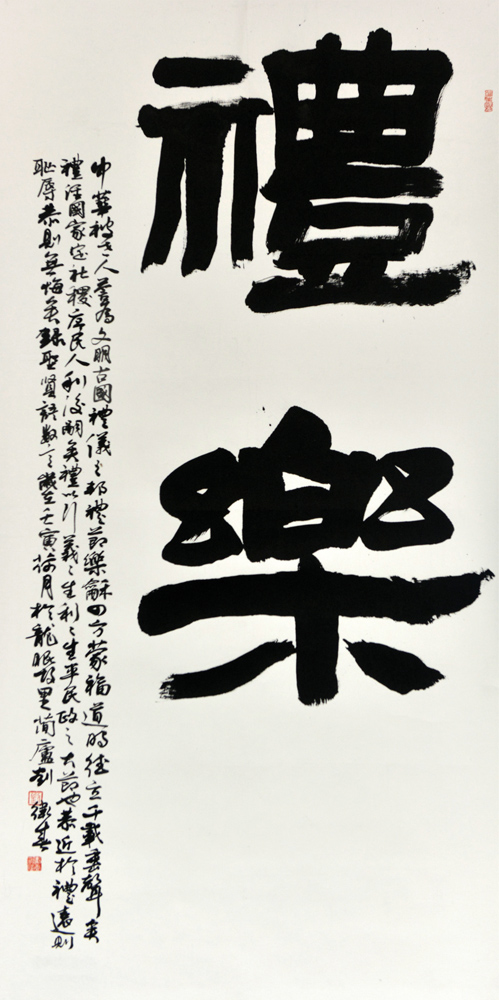 禮樂
中華被世人譽為文明古國禮儀之邦禮節樂龢四方蒙福道明德立千載垂聲矣
禮經國家定社稷序民人利後嗣矣禮以行義〻生利〻生平民政之大節也恭近於禮遠則
恥辱恭則無悔矣錄聖賢語數言歲在壬寅荷月於龍眠故里簡廬劉春